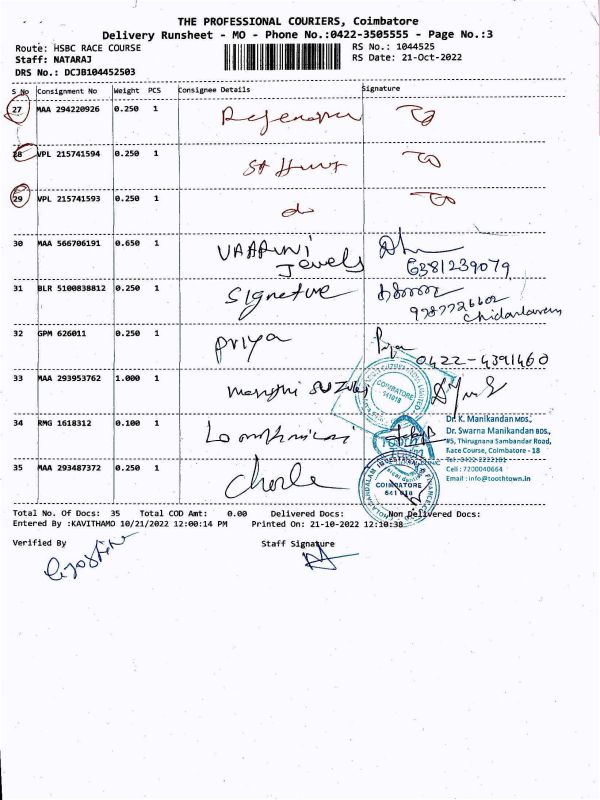 THE PROFESSIONAL COURIERS, Coimbatore
Delivery Runsheet - MO - Phone No.:0422-3505555 - Page No.:3
Route: HSBC RACE COURSE RS No.: 1044525
Staff: NATARAJ RS Date: 21-Oct-2022
DRS No.: DCJB104452503
S No Consignment No Weight PCS Consignee Details Signature
27 MAA 294220926 0.250 1
28 VPL 215741594 0.250 1
29 VPL 215741593 0.250 1 do
30 MAA 566706191 0.650 1 Jewels
6381239079
31 BLR 5100838812 0.250 1 Signature
32 GPM 626011 0.250 1 Priya
0422-4391460
33 MAA 293953762 1.000 1 Maruthi Suzuki
COIMBATORE
641018
34 RMG 1618312 0.100 1
Dr. K. Manikandan MDS.,
Dr. Swarna Manikandan BDS.,
#5, Thirugnana Sambandar Road,
Race Course, Coimbatore - 18
Tel.:0422-2222181
Cell : 7200040664
Email : info@toothtown.in
35 MAA 293487372 0.250 1 Chola
COIMBATORE
641 018
Total No. Of Docs: 35 Total COD Amt: 0.00 Delivered Docs: Non Delivered Docs:
Entered By :KAVITHAMO 10/21/2022 12:00:14 PM Printed On: 21-10-2022 12:10:38
Verified By Staff Signature